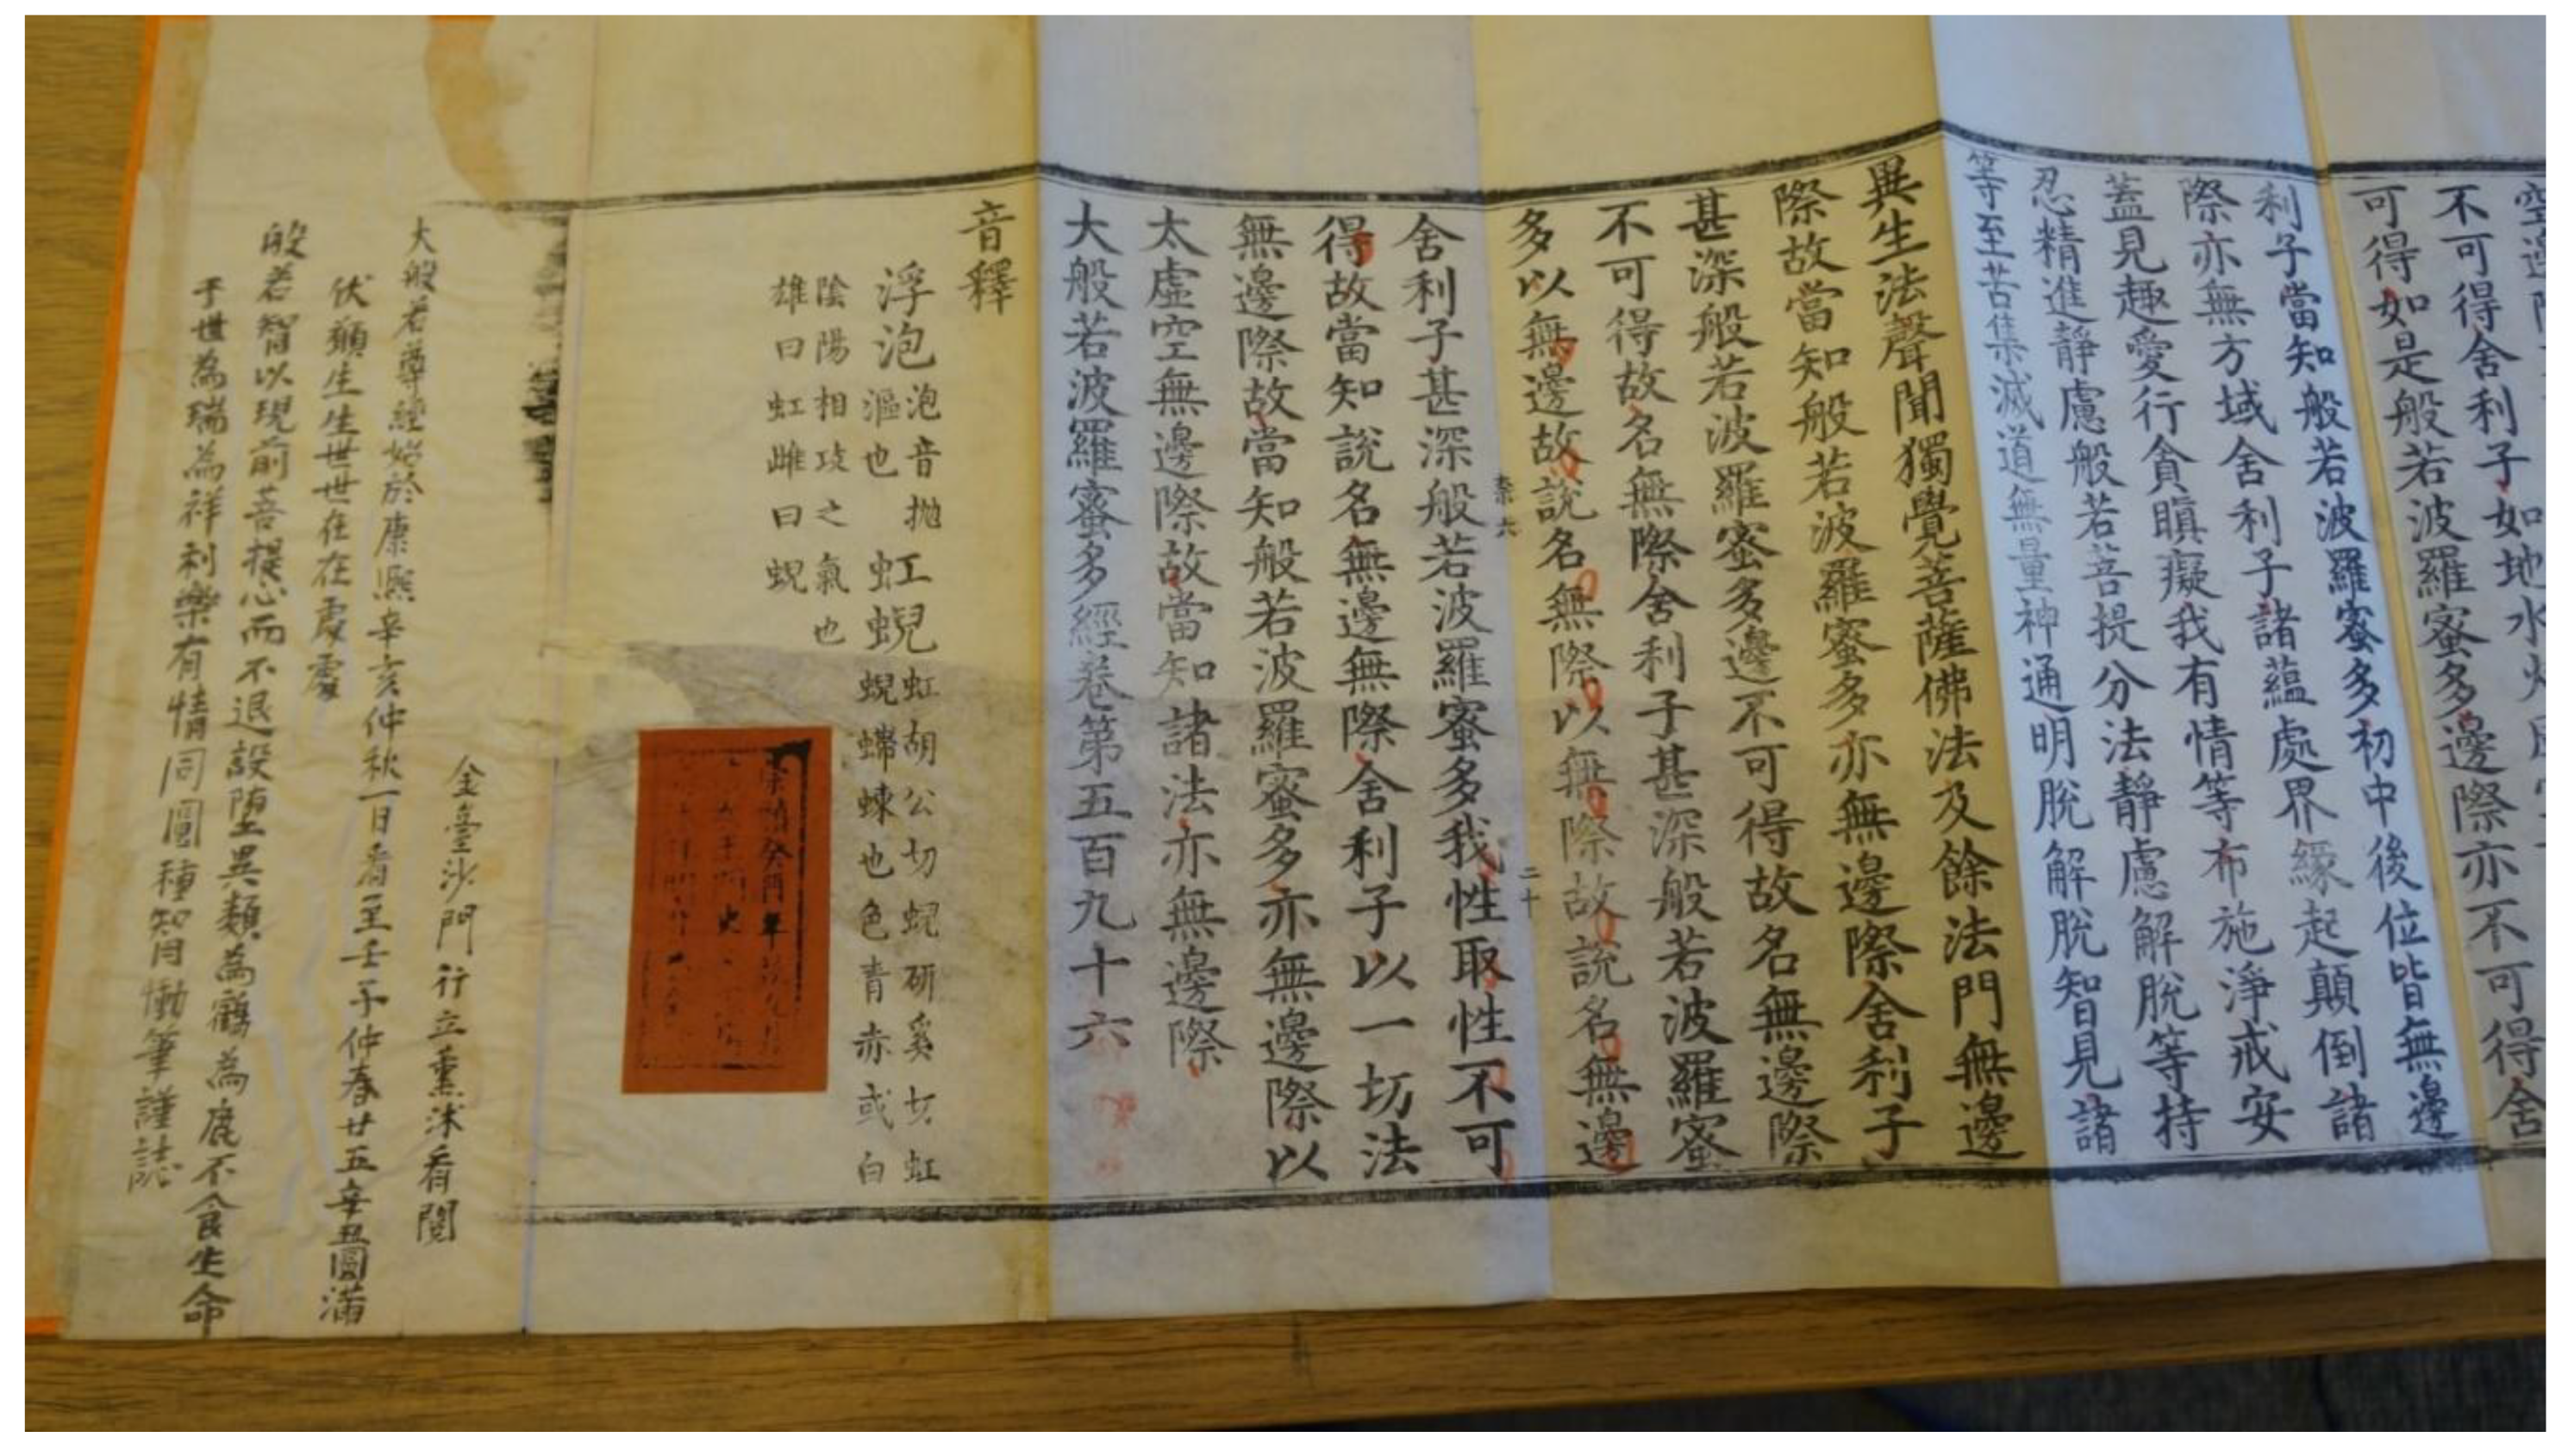 不可得舍利子如地水火
可得如是般若波羅蜜多邊際亦不可得舍
利子當知般若波羅蜜多初中後位皆無邊
際亦無方域舍利子諸蘊處界緣起顛倒諸
蓋見趣愛行貪瞋癡我有情等布施淨戒安
忍精進靜慮般若菩提分法靜慮解脫等持
等至苦集滅道無量神通明脫解脫智見諸
異生法聲聞獨覺菩薩佛法及餘法門無邊
際故當知般若波羅蜜多亦無邊際舍利子
甚深般若波羅蜜多邊不可得故名無邊際
不可得故名無際舍利子甚深般若波羅蜜
多以無邊故說名無際以無際故說名無邊
柰六
二十
舍利子甚深般若波羅蜜多我性取性不可
得故當知說名無邊無際舍利子以一切法
無邊際故當知般若波羅蜜多亦無邊際以
太虛空無邊際故當知諸法亦無邊際
大般若波羅蜜多經卷第五百九十六
音釋
浮泡
泡音抛
漚也
虹蜺
虹胡公切蜺研奚切虹
蜺螮蝀也色青赤或白
陰陽相攻之氣也
雄曰虹雌曰蜺
癸丑年
金臺沙門行立熏沐看閱
大般若尊經始於康熙辛亥仲秋一日看至壬子仲春廿五辛丑圓滿
伏願生生世世在在處處
般若智以現前菩提心而不退設墮異類為鶴為鹿不食生命
于世為瑞為祥利樂有情同圓種智月慟筆謹誌